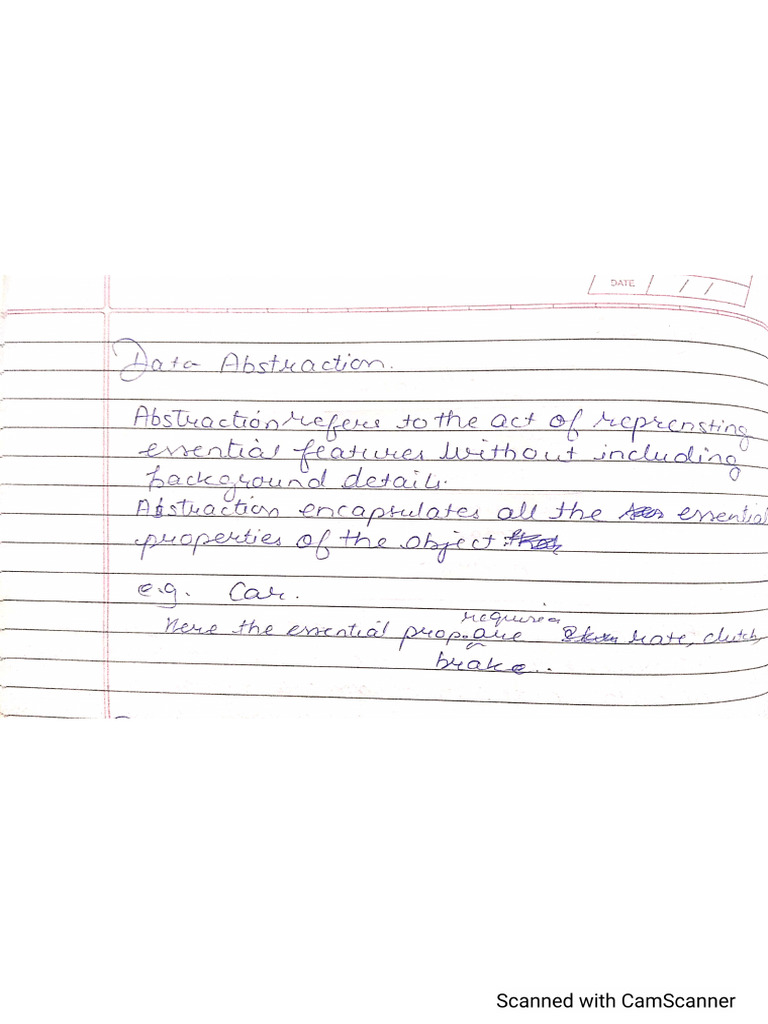 DATE / /
Data Abstraction.
Abstraction refers to the act of reprensting
essential features without including
background details.
Abstraction encapsulates all the essential
properties of the object
e.g. Car.
required
Here the essential prop. are rate, clutch,
brake..
Scanned with CamScanner